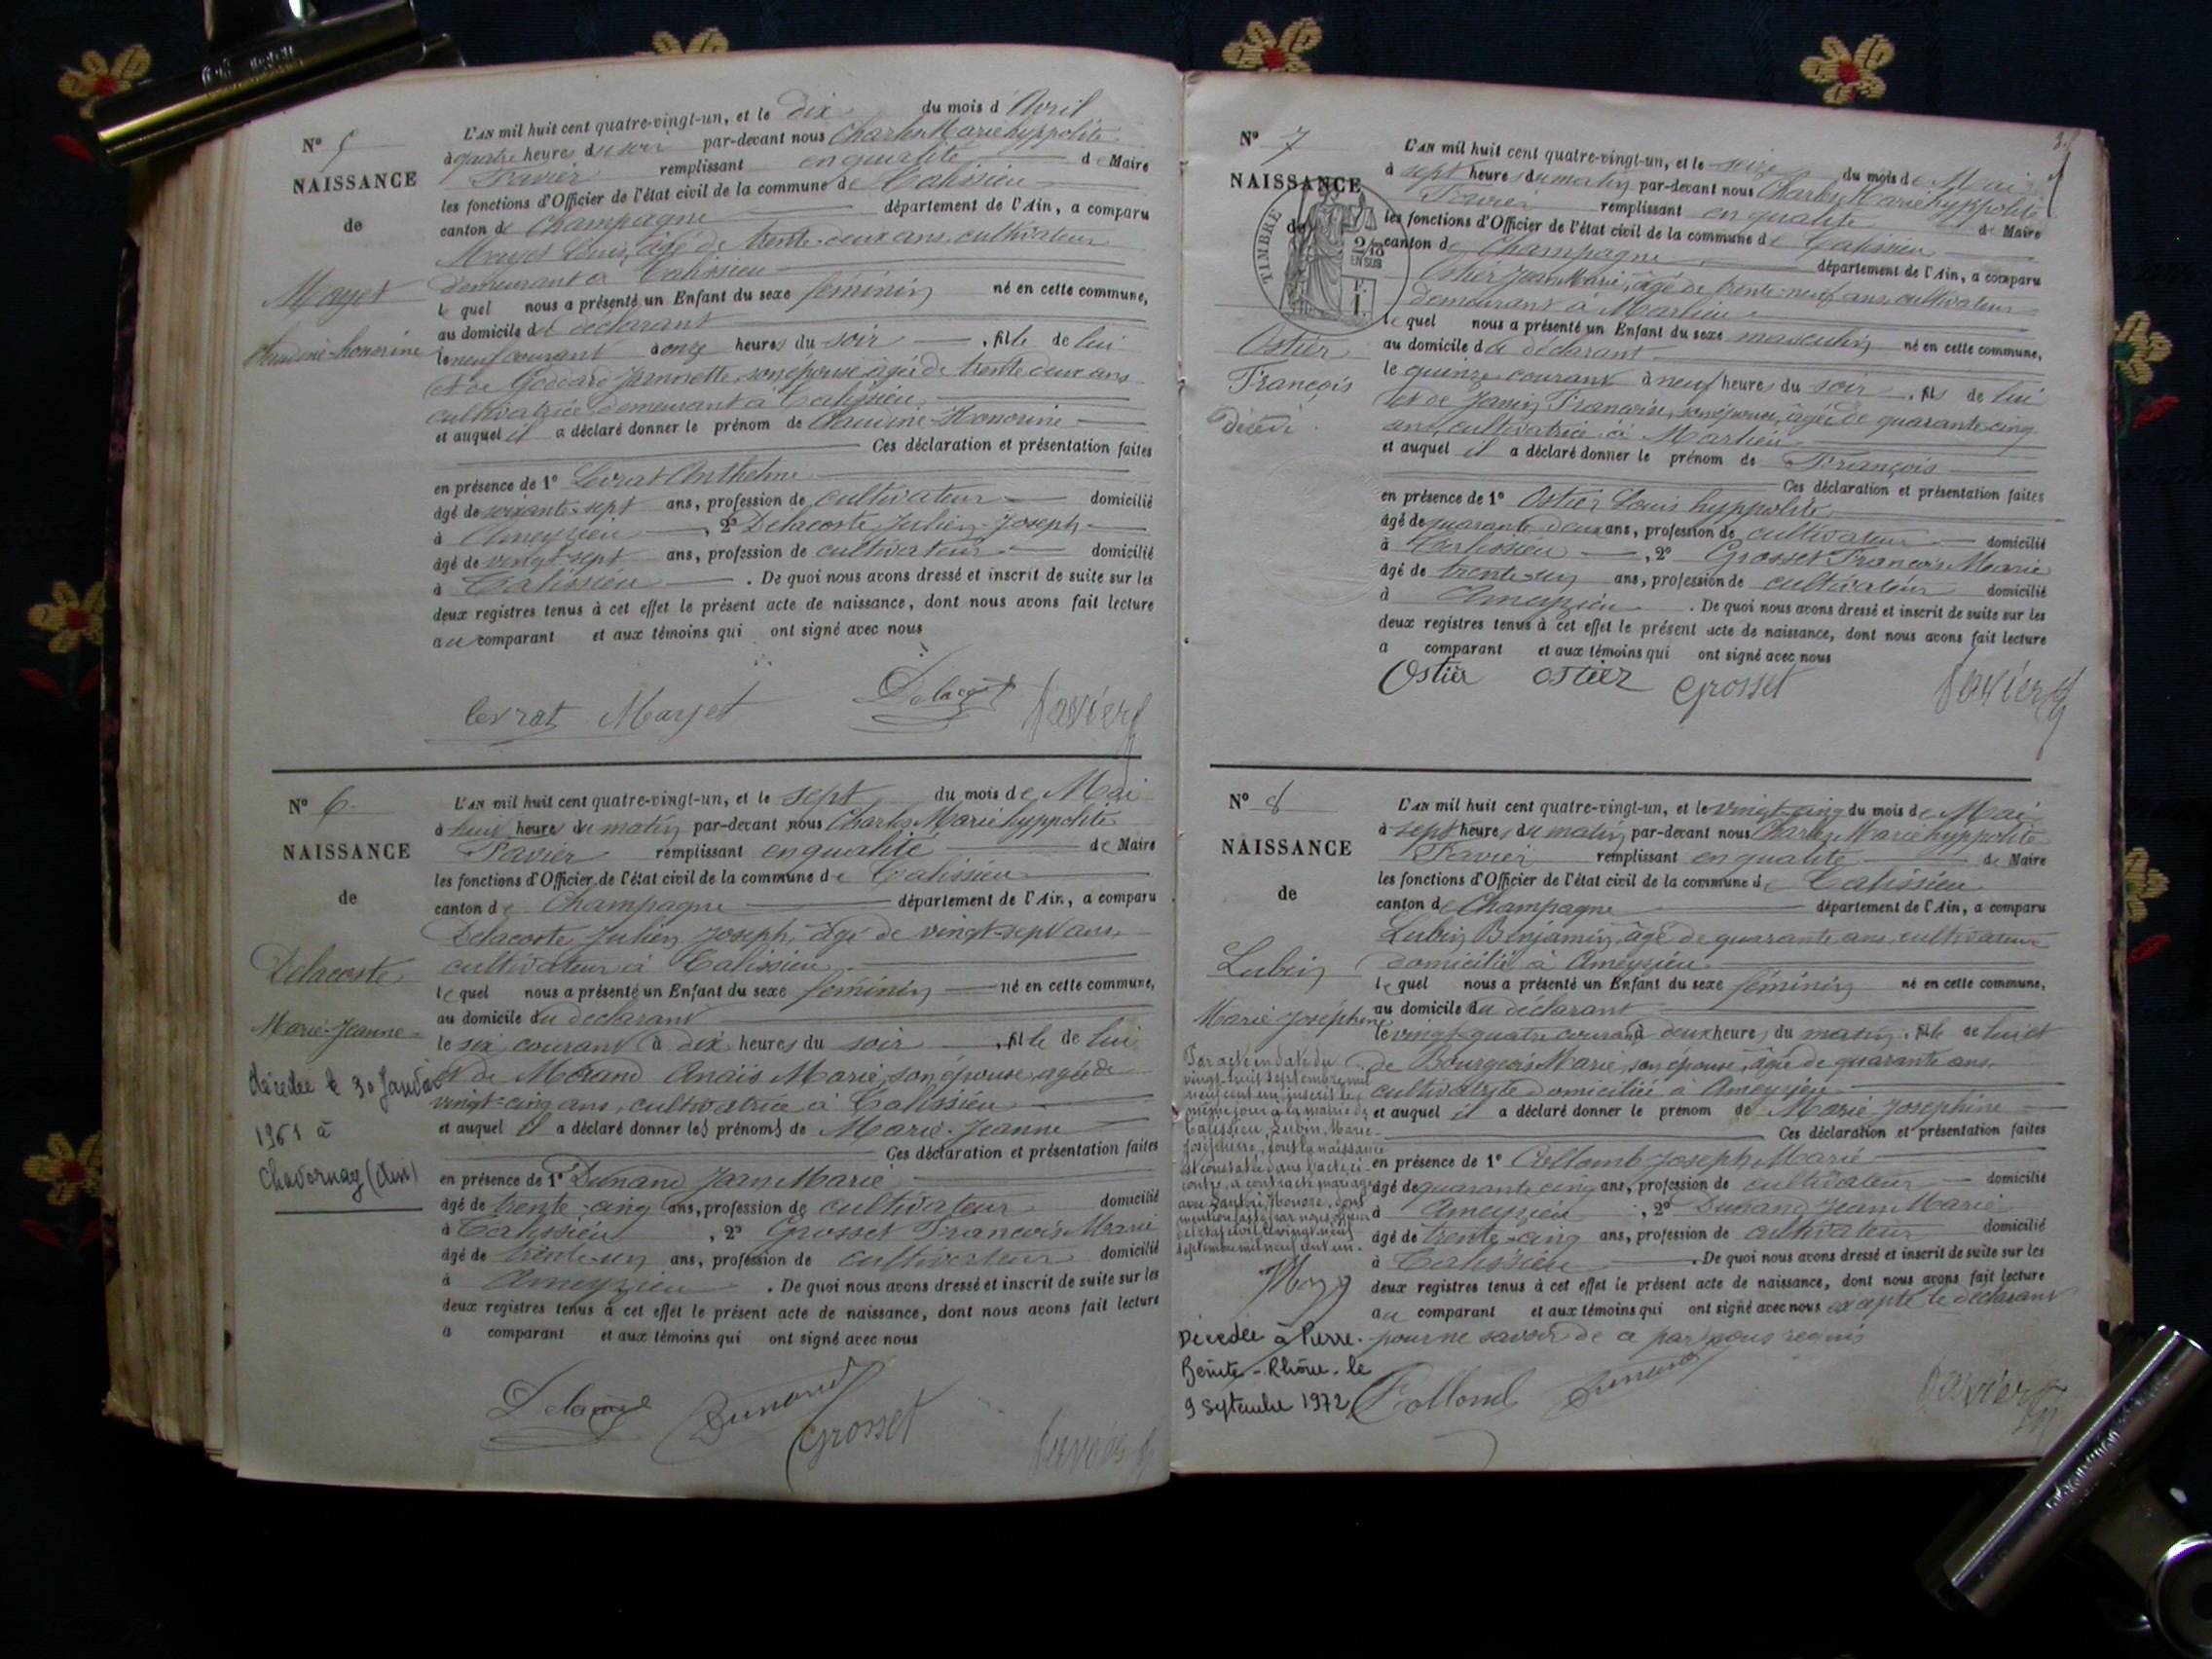 N° 5
NAISSANCE
de
Mayet
Claudine-honorine
L'AN mil huit cent quatre-vingt-un, et le dix du mois d'Avril
à quatre heures du soir par-devant nous Charles Marie hyppolite
Favier remplissant en qualité de Maire
les fonctions d'Officier de l'état civil de la commune de Talissieu
canton de Champagne département de l'Ain, a comparu
Mayet Louis, âgé de trente-deux ans, cultivateur
demeurant à Talissieu
lequel nous a présenté un Enfant du sexe féminin né en cette commune,
au domicile du déclarant
le neuf courant à onze heures du soir, fille de lui
et de Goddard Jeannette, son épouse âgée de trente deux ans
cultivatrice demeurant à Talissieu
et auquel il a déclaré donner le prénom de Claudine-Honorine
Ces déclaration et présentation faites
en présence de 1° Levrat Anthelme
âgé de soixante-sept ans, profession de cultivateur domicilié
à Ameyzieu, 2° Delacoste Julien-Joseph
âgé de vingt-sept ans, profession de cultivateur domicilié
à Talissieu. De quoi nous avons dressé et inscrit de suite sur les
deux registres tenus à cet effet le présent acte de naissance, dont nous avons fait lecture
au comparant et aux témoins qui ont signé avec nous
levrat Mayet Delacoste favier
N° 6
NAISSANCE
de
Delacoste
Marie-Jeanne
décédée le 30 Janvier
1961 à
Chavornay (Ain)
L'AN mil huit cent quatre-vingt-un, et le sept du mois de Mai
à huit heures du matin par-devant nous Charles Marie hyppolite
Favier remplissant en qualité de Maire
les fonctions d'Officier de l'état civil de la commune de Talissieu
canton de Champagne département de l'Ain, a comparu
Delacoste Julien Joseph, âgé de vingt-sept ans,
cultivateur à Talissieu
lequel nous a présenté un Enfant du sexe féminin né en cette commune,
au domicile du déclarant
le six courant à dix heures du soir, fille de lui
et de Morand Anaïs Marie, son épouse, agée de
vingt-cinq ans, cultivatrice à Talissieu
et auquel il a déclaré donner les prénoms de Marie-Jeanne
Ces déclaration et présentation faites
en présence de 1° Dunand Jean Marie
âgé de trente-cinq ans, profession de cultivateur domicilié
à Talissieu, 2° Grosset François Marie
âgé de trente-un ans, profession de cultivateur domicilié
à Ameyzieu. De quoi nous avons dressé et inscrit de suite sur les
deux registres tenus à cet effet le présent acte de naissance, dont nous avons fait lecture
a comparant et aux témoins qui ont signé avec nous
Delacoste Dunand
Grosset favier
N° 7
NAISSANCE
de
TIMBRE
2/10
EN SUS
F.
1.
Ostier
François
Décédé
L'AN mil huit cent quatre-vingt-un, et le seize du mois de Mai
à sept heures du matin par-devant nous Charles Marie hyppolite
Favier remplissant en qualité de Maire
les fonctions d'Officier de l'état civil de la commune de Talissieu
canton de Champagne département de l'Ain, a comparu
Ostier Jean Marie, âgé de trente-neuf ans, cultivateur
demeurant à Marlieu
lequel nous a présenté un Enfant du sexe masculin né en cette commune,
au domicile du déclarant
le quinze courant à neuf heures du soir, fils de lui
et de Janin Françoise, son épouse, âgée de quarante-cinq
ans, cultivatrice à Marlieu
et auquel il a déclaré donner le prénom de François
Ces déclaration et présentation faites
en présence de 1° Ostier Louis hyppolite
âgé de quarante-deux ans, profession de cultivateur domicilié
à Talissieu, 2° Grosset François Marie
âgé de trente-un ans, profession de cultivateur domicilié
à Ameyzieu. De quoi nous avons dressé et inscrit de suite sur les
deux registres tenus à cet effet le présent acte de naissance, dont nous avons fait lecture
a comparant et aux témoins qui ont signé avec nous
Ostier ostier Grosset favier
N° 8
NAISSANCE
de
Lubin
Marie Joséphine
Par acte en date du
vingt-huit septembre mil
neuf cent un, inscrit le
même jour à la mairie de
Talissieu, Lubin, Marie-
Joséphine, dont la naissance
est constatée dans l'acte ci-
contre, a contracté mariage
avec
septembre mil neuf cent un.
Décédée à Pierre-
Bénite-Rhône-le
9 Septembre 1972
L'AN mil huit cent quatre-vingt-un, et le vingt-cinq du mois de Mai
à sept heures du matin par-devant nous Charles Marie hyppolite
Favier remplissant en qualité de Maire
les fonctions d'Officier de l'état civil de la commune de Talissieu
canton de Champagne département de l'Ain, a comparu
Lubin Benjamin, âgé de quarante ans, cultivateur
domicilié à Ameyzieu
lequel nous a présenté un Enfant du sexe féminin né en cette commune,
au domicile du déclarant
le vingt-quatre courant à deux heures du matin, fille de lui et
de Bourgeois Marie, son épouse, âgée de quarante ans,
cultivatrice domiciliée à Ameyzieu
et auquel il a déclaré donner le prénom de Marie Josephine
Ces déclaration et présentation faites
en présence de 1° Collomb Joseph Marie
âgé de quarante cinq ans, profession de cultivateur domicilié
à Ameyzieu, 2° Dunand Jean Marie
âgé de trente-cinq ans, profession de cultivateur domicilié
à Talissieu. De quoi nous avons dressé et inscrit de suite sur les
deux registres tenus à cet effet le présent acte de naissance, dont nous avons fait lecture
au comparant et aux témoins qui ont signé avec nous excepté le déclarant
pour ne savoir de ce par nous requis
Collomb Dunand favier